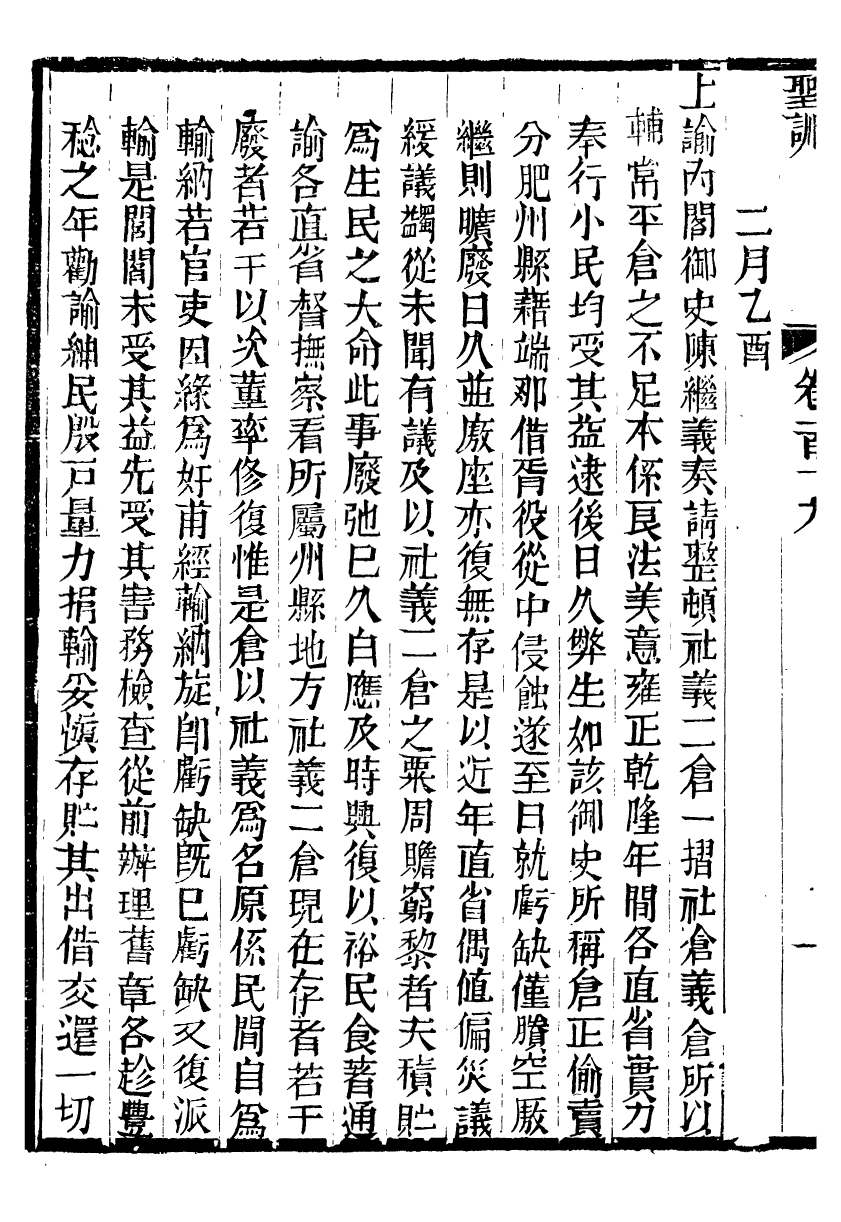 聖訓 卷一百一十九 一
二月乙酉
上諭內閣御史陳繼義奏請整頓社義二倉一摺社倉義倉所以
輔常平倉之不足本係良法美意雍正乾隆年間各直省實力
奉行小民均受其益逮後日久弊生如該御史所稱倉正偷賣
分肥州縣藉端那借胥役從中侵蝕遂至日就虧缺僅賸空厫
繼則曠廢日久並厫座亦復無存是以近年直省偶値偏災議
緩議蠲從未聞有議及以社義二倉之粟周贍窮黎者夫積貯
爲生民之大命此事廢弛已久自應及時興復以裕民食著通
諭各直省督撫察看所屬州縣地方社義二倉現在存者若干
廢者若干以次董率修復惟是倉以社義爲名原係民間自爲
輸納若官吏因緣爲奸甫經輸納旋卽虧缺旣已虧缺又復派
輸是閭閻未受其益先受其害務檢查從前辦理舊章各趁豐
稔之年勸諭紳民殷戶量力捐輸妥愼存貯其出借交還一切